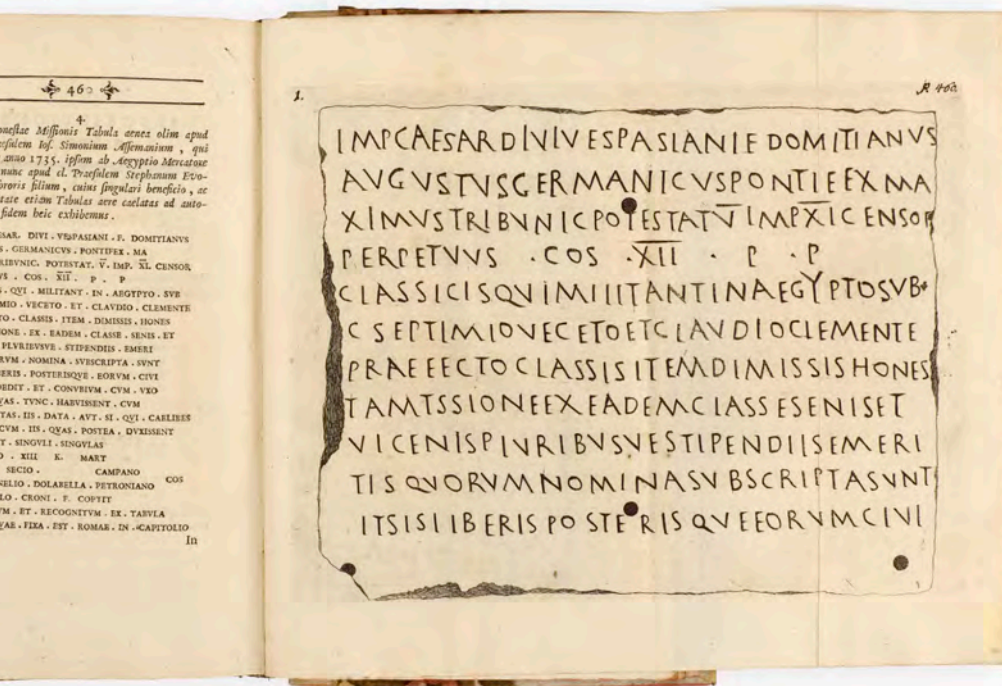 460
4.
onestae Missionis Tabula aenea olim apud
esulem Ios. Simonium Assemanium , qui
anno 1735. ipsum ab Aegyptio Mercatore
nunc apud cl. Praesulem Stephanum Evo-
roris filium , cuius singulari beneficio , ac
tate etiam Tabulas aere caelatas ad auto-
fidem heic exhibemus .
ESAR. DIVI . VESPASIANI . F. DOMITIANVS
S . GERMANICVS . PONTIFEX . MA
RIBVNIC. POTESTAT. V. IMP. XI. CENSOR
VS . COS . XII . P . P
. QVI . MILITANT . IN . AEGYPTO . SVB
MIO . VECETO . ET . CLAVDIO . CLEMENTE
TO . CLASSIS . ITEM . DIMISSIS . HONES
IONE . EX . EADEM . CLASSE . SENIS . ET
PLVRIBVSVE . STIPENDIIS . EMERI
RVM . NOMINA . SVBSCRIPTA . SVNT
BERIS . POSTERISQVE . EORVM . CIVI
DEDIT . ET . CONVBIVM . CVM . VXO
VAS . TVNC . HABVISSENT . CVM
TAS . IIS . DATA . AVT . SI . QVI . CAELIBES
CVM . IIS . QVAS . POSTEA . DVXISSENT
T . SINGVLI . SINGVLAS
O . XIII K. MART
SECIO . CAMPANO
NELIO . DOLABELLA . PETRONIANO COS
LO . CRONI . F. COPTIT
VM . ET . RECOGNITVM . EX . TABVLA
VAE . FIXA . EST . ROMAE . IN . CAPITOLIO
In
1.
P. 460.
IMPCAESARDIVIVESPASIANIEDOMITIANVS
AVGVSTVSGERMANICVSPONTIEEXMA
XIMVSTRIBVNICPOTESTATV̅IMPX̅I̅CENSOR
PERPETVVS .COS .X̅I̅I̅ . P .P
CLASSICISQVIMIIITANTINAEGYPTOSVB
C SEPTIMIOVECETOETCLAVDIOCLEMENTE
PRAEEECTOCLASSISITEMDIMISSISHONES
TAMTSSIONEEXEADEMCLASSESENISET
VICENISPIVRIBVSVESTIPENDIISEMERI
TISQVORVMNOMINASVBSCRIPTASVNT
ITSISIIBERISPOSTERISQVEEORVMCIVI